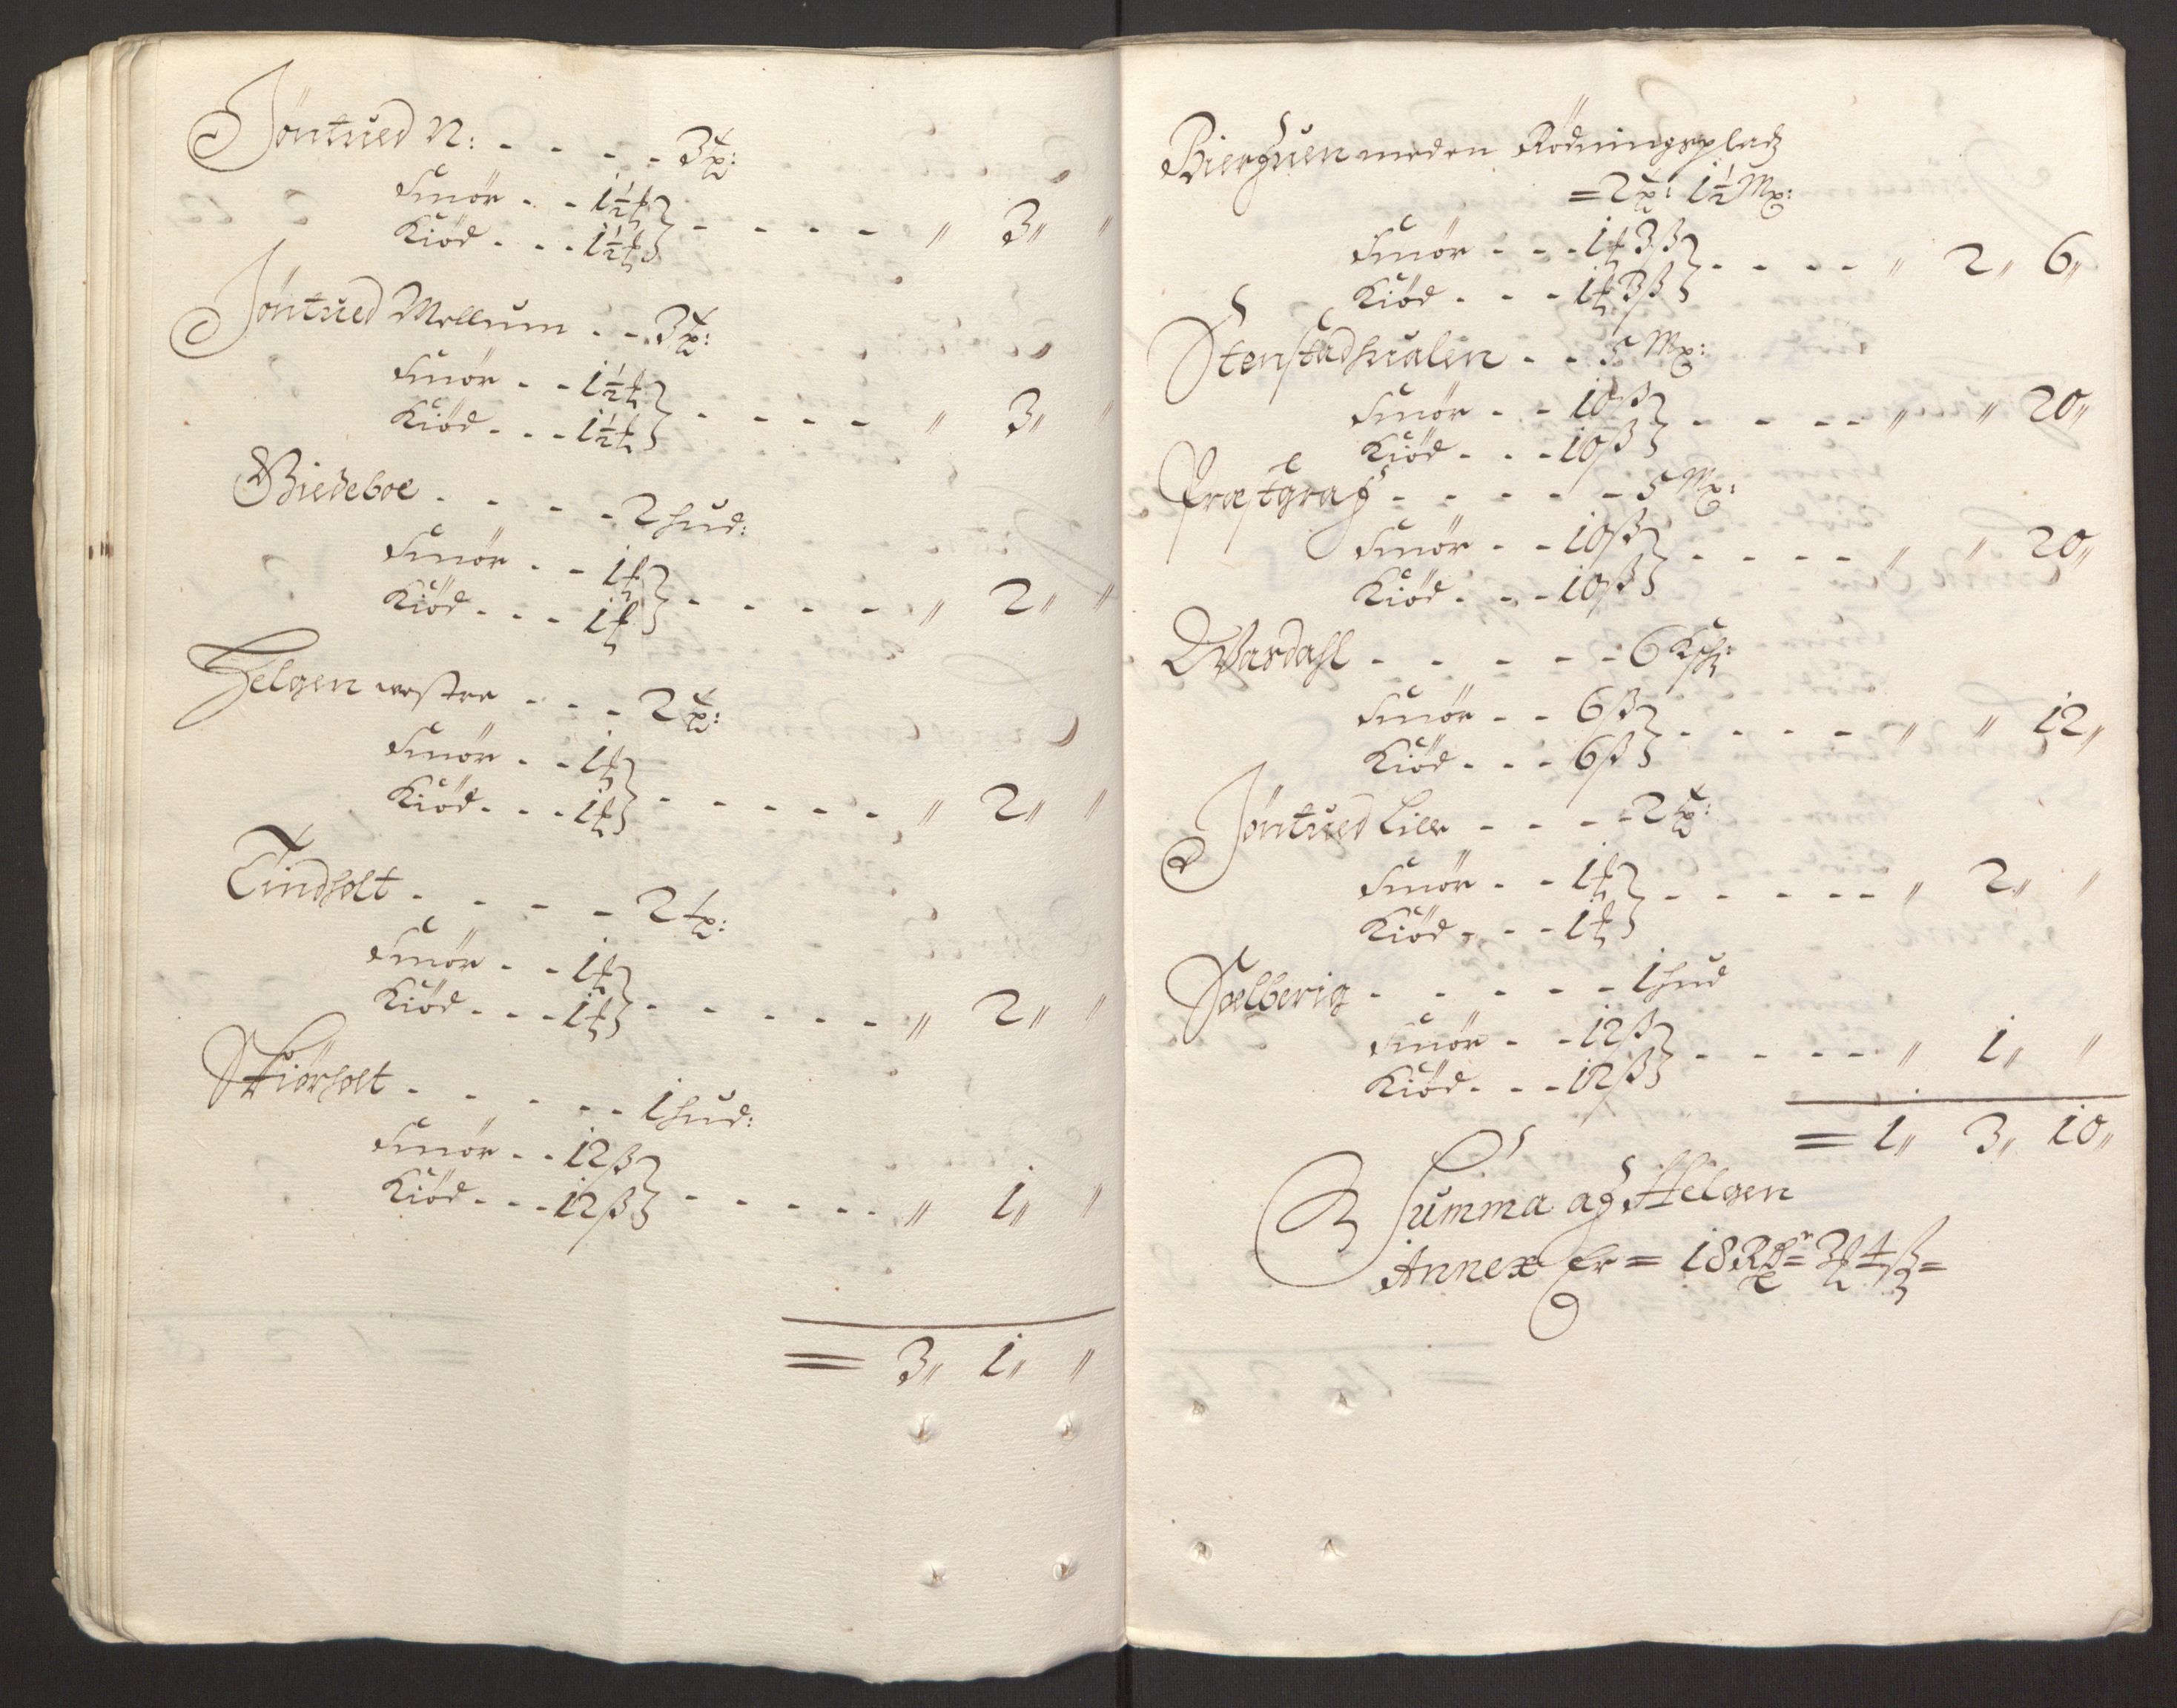 Jöntued N: - - - - 3 tp:
Smör - - 1½ t
Kiöd - - - 1½ t } - - - - „ 3„ „
Jöntued Mellum - - 3 tp:
Smör - - 1½ t
Kiöd - - - 1½ t } - - - - „ 3„ „
Biedeboe - - - - 2 hud:
Smör - - 1 t
Kiöd - - - 1 t } - - - - „ 2„ „
Helgen westre - - - 2 tp:
Smör - - 1 t
Kiöd - - - 1 t } - - - - - „ 2„ „
Lindholt - - - - 2 tp:
Smör - - 1 t
Kiöd - - - 1 t } - - - - - „ 2„ „
Skiörholt - - - - - 1 hud:
Smör - - 12 ß
Kiöd - - - 12 ß } - - - - - „ 1„ „
= 3„ 1„ „
Bierfuen meden Rödningsplads
= 2 tp: 1½ Mp:
Smör - - - 1 t 3 ß
Kiöd - - - 1 t 3 ß } - - - - „ 2„ 6„
Stenstadhualen - - 5 Mp:
Smör - - 10 ß
Kiöd - - - 10 ß } - - - - „ „ 20„
Præstgraf - - - - - 5 Mp:
Smör - - 10 ß
Kiöd - - - 10 ß } - - - - „ „ 20„
Wasdahl - - - - - 6 Ksk:
Smör - - 6 ß
Kiöd - - - 6 ß } - - - - „ „ 12„
Jöntued Lille - - - - 2 tp:
Smör - - 1 t
Kiöd - - - 1 t } - - - - - „ 2„ „
Sælberig - - - - - 1 hud
Smör - - 12 ß
Kiöd - - - 12 ß } - - - - „ 1„ „
= 1„ 3„ 10„
Summa af Helgen
Annex Er = 18 Rdr = 3 t 4 ß =